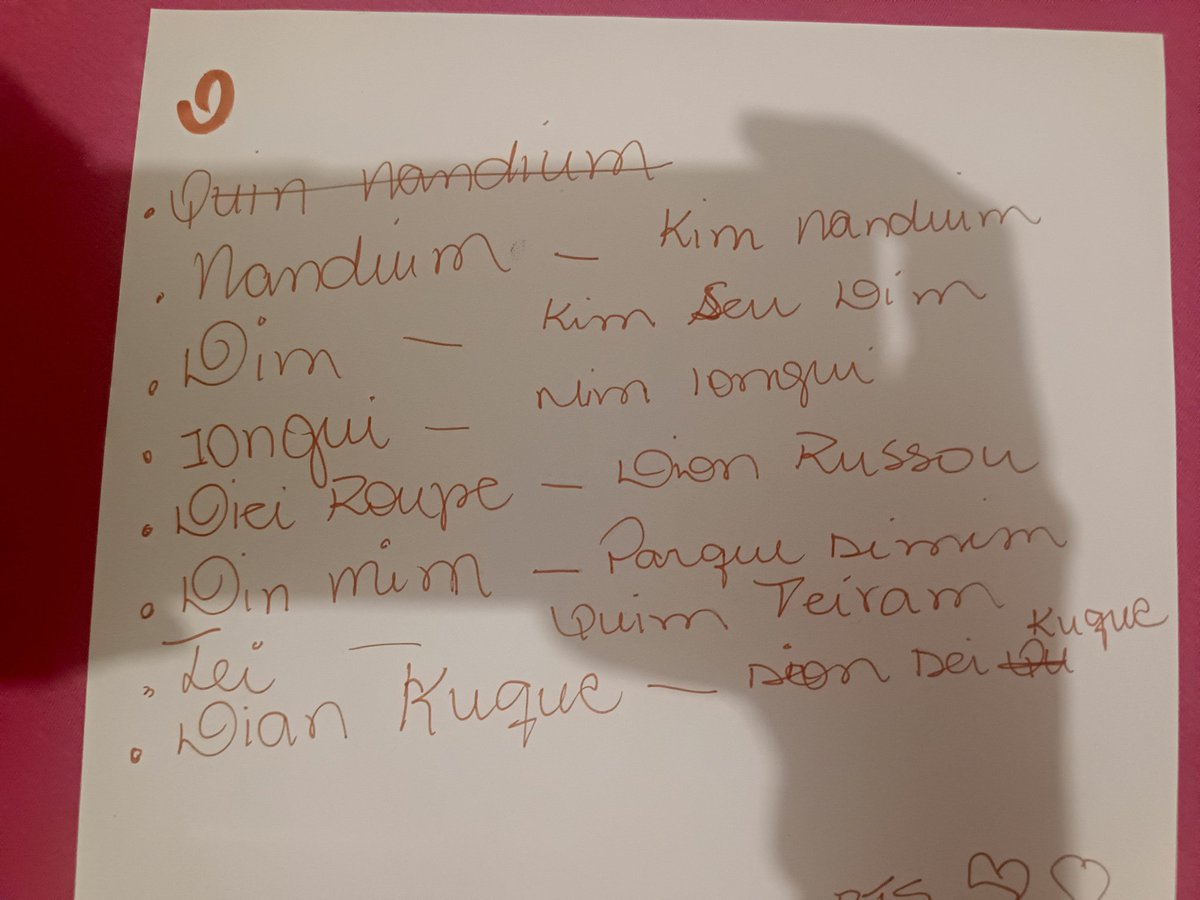 Quin nandium
Nandium — Kim nandium
Dim — Kim Seu Dim
Ionqui — Mim Ionqui
Diei Roupe — Dion Russou
Din mim — Parque Dimim
Tei — Quim Teiram
Dian Kuque — Dion Dei Qu Kuque